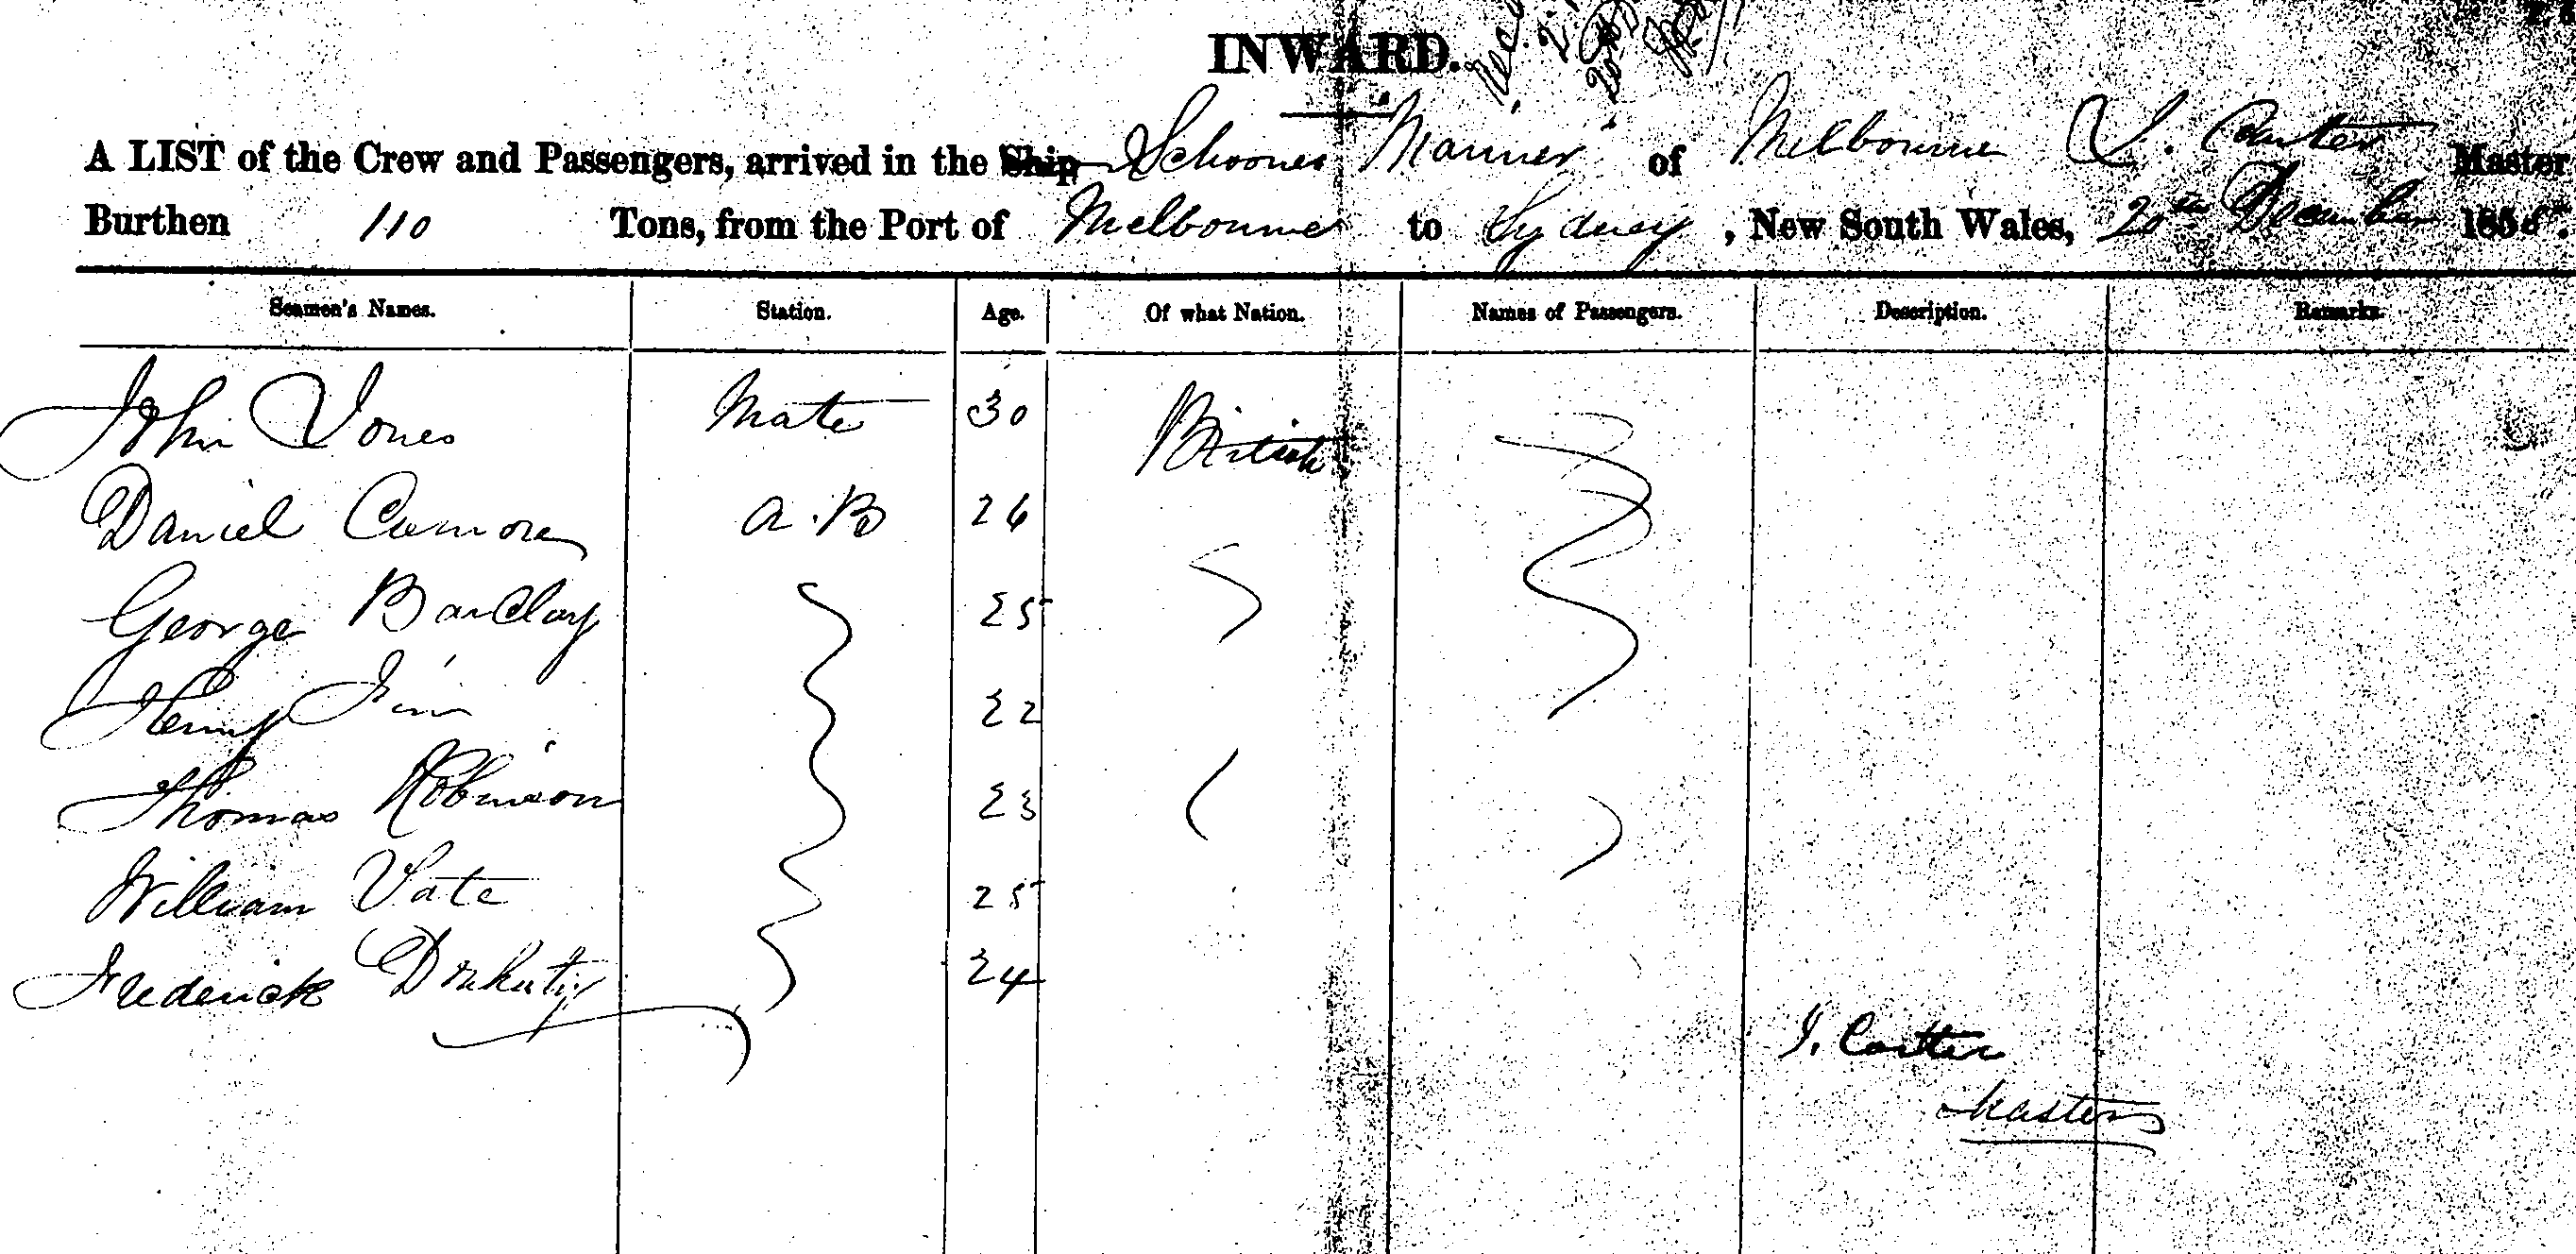 INWARD.
A LIST of the Crew and Passengers, arrived in the Ship Schooner Mariner of Melbourne J. Carter Master
Burthen 110 Tons, from the Port of Melbourne to Sydney, New South Wales, 20th December 185
Seamen's Names. Station. Age. Of what Nation. Names of Passengers. Description. Remarks.
John Jones Mate 30 British
Daniel A.B 26
George Barclay 25
Henry 22
Thomas Robinson 23
William 25
Frederick 24
J. Carter
Master